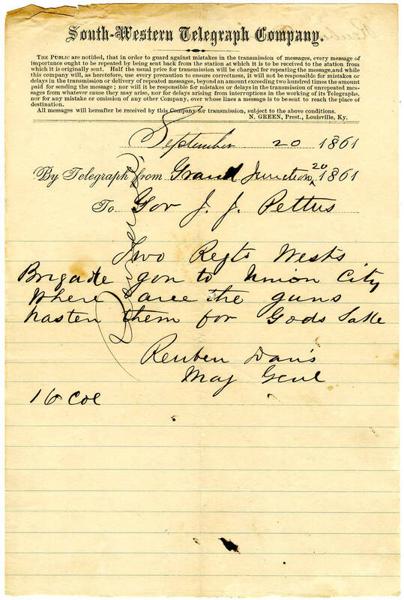 South-Western Telegraph Company.
THE PUBLIC are notified, that in order to guard against mistakes in the transmission of messages, every message of
importance ought to be repeated by being sent back from the station at which it is to be received to the station from
which it is originally sent. Half the usual price for transmission will be charged for repeating the message, and while
this company will, as heretofore, use every precaution to ensure correctness, it will not be responsible for mistakes or
delays in the transmission or delivery of repeated messages, beyond an amount exceeding two hundred times the amount
paid for sending the message; nor will it be responsible for mistakes or delays in the transmission of unrepeated mes-
sages from whatever cause they may arise, nor for delays arising from interruptions in the working of its Telegraphs,
nor for any mistake or omission of any other Company, over whose lines a message is to be sent to reach the place of
destination.
All messages will hereafter be received by this Company for transmission, subject to the above conditions.
N. GREEN, Prest., Louisville, Ky.
September 20 1861
By Telegraph from Grand Junction 20 1861
To Gov J. J. Pettus
Two Regts Wests
Brigade gon to Union City
Where aree the guns
hasten them for Gods Sake
Reuben Davis
Maj Genl
16 Col